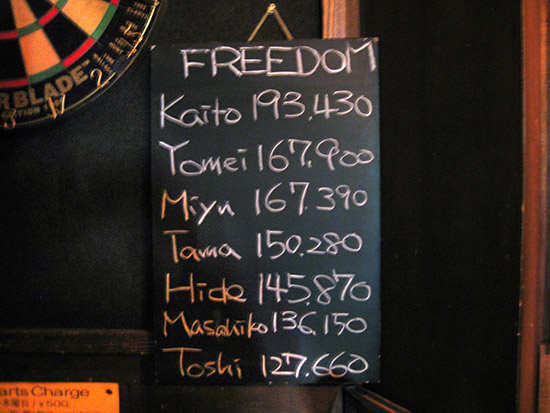 FREEDOM
Kaito 193.430
Yomei 167.900
Miyu 167.390
Tama 150.280
Hide 145.870
Masahiko 136.150
Toshi 127.660
RBLADE
3 17 2
arts Charge
木曜日/¥500.